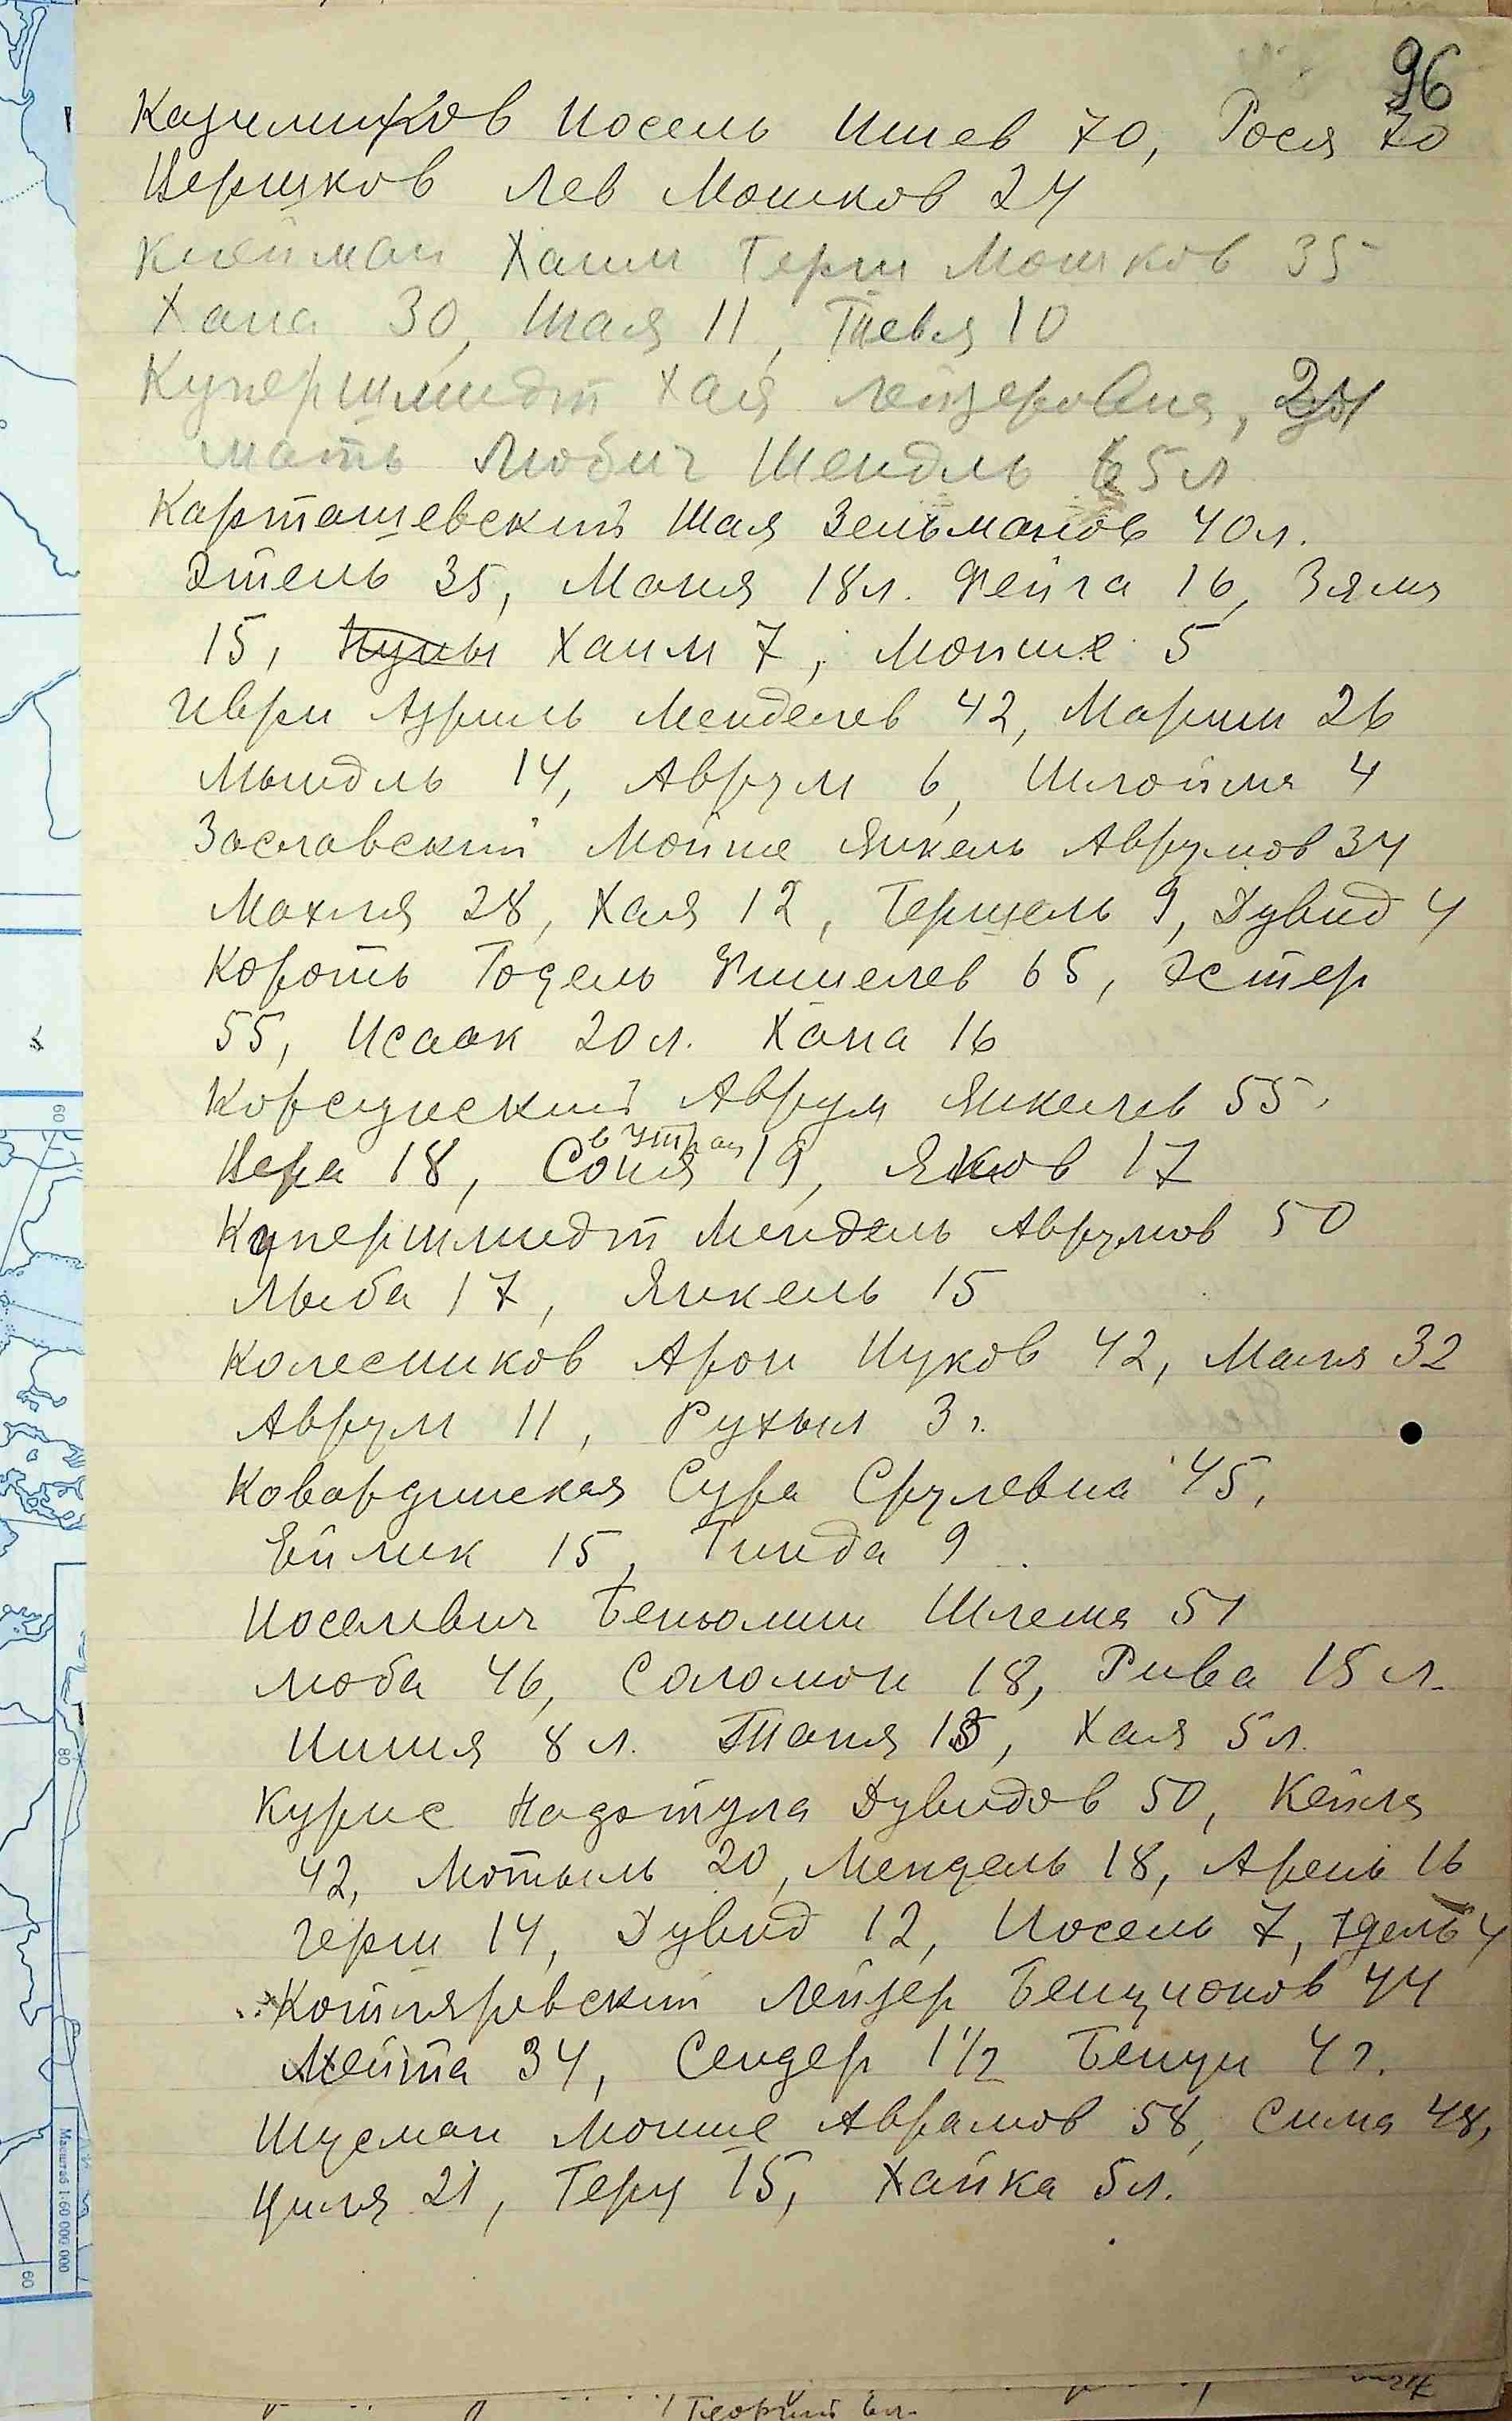 96
Казимиров Иосель Ицев 70, Рося 70
Цершков Лев Мошков 24
Клейман Хаим Герш Мошков 35
Хана 30, Шая 11, Тевя 10
Купершмидт Хая Лейзеровна, 24
мать Любич Шендль 65л
Карташевский Шая Зельманов 40л.
Этель 35, Маня 18л. Фейга 16, Зяма
15, Хаим 7, Мойше 5
Иври Азриль Менделев 42, Мариш 26
Мындль 14, Аврум 6, Шлойма 4
Заславский Мойше Янкель Аврумов 34
Махля 28, Хая 12, Гершель 9, Дувид 4
Короть Годель Фишелев 65, Эстер
55, Исаак 20л. Хана 16
Корсунский Аврум Янкелев 55,
Вера 18, Соня 19, Яков 17
Купершмидт Мендель Аврумов 50
Лыба 17, Янкель 15
Колесников Арон Ицков 42, Маня 32
Аврум 11, Рухыл 3г.
Ковардинская Сура Срулевна 45,
Ейлик 15, Гинда 9
Иоселевич Беньюмин Шлема 51
Люба 46, Соломон 18, Рива 15 л.
8 л. Таня 13, Хая 5л.
Курис Дувидов 50, Кейля
42, Мотыль 20, Мендель 18, Арень 16
Герш 14, Дувид 12, Иосель 7, Эдель 4
Котляревский Лейзер Бенционов 44
Мейта 34, Сендер 1½ Бенци 4г.
Шусман Мойше Аврамов 58, Сима 48,
Циля 21, Герц 15, Хайка 5л.
Масштаб 1:60 000 000
60
80
60